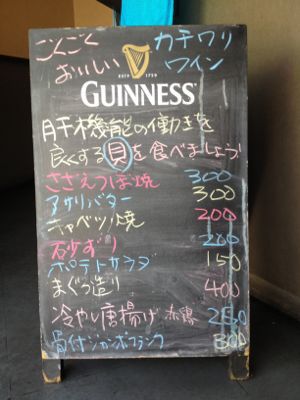 ごくごく
おいしい
カチワリ
ワイン
ESTD 1759
GUINNESS
肝機能の働きを
良くする貝を食べましょう
さざえつぼ焼 300
アサリバター 300
キャベツ焼 200
砂ずり 200
ポテトサラダ 150
まぐろ造り 400
冷やし唐揚げ 赤鶏 250
骨付ジャンボフランク 300